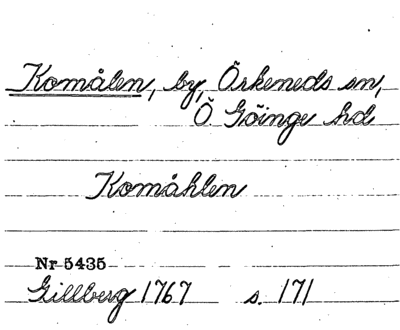 Komålen, by, Örkeneds sn,
Ö Göinge hd
Komåhlen
Nr 5435
Gillberg 1767 s. 171